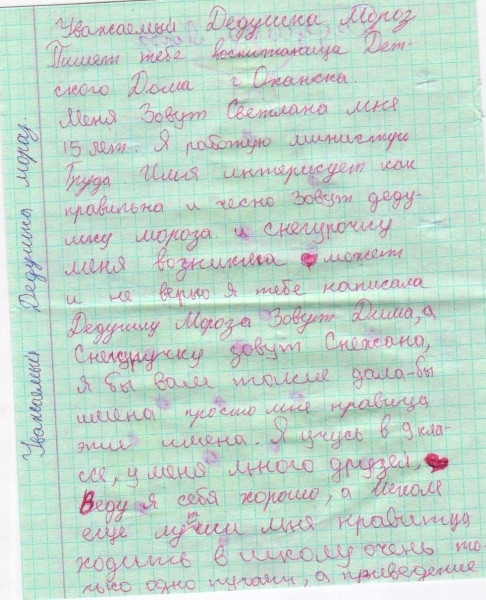 Уважаемый Дедушка Мороз
Пишет тебе воспитаница Дет-
ского Дома г Оханска.
Меня Зовут Светлана мне
15 лет. Я работую министиру
Труда Имя интерисует как
правильна и чесно зовут деду-
шку мороза и снегурочку
меня возникла может
и не верно я тебе написала
Дедушку Мороза Зовут Дима, а
Снегуручку зовут Снежана,
я бы вам тоже дала-бы
имена просто мне нравица
эти имена. Я учусь в 9 кла-
се, у меня много друзей,
Веду я себя хорошо, а школе
еще лутчи мня нравитца
ходить в школу очень то-
лько одно пугает, а приведение
Уважаемый Дедушка мороз.